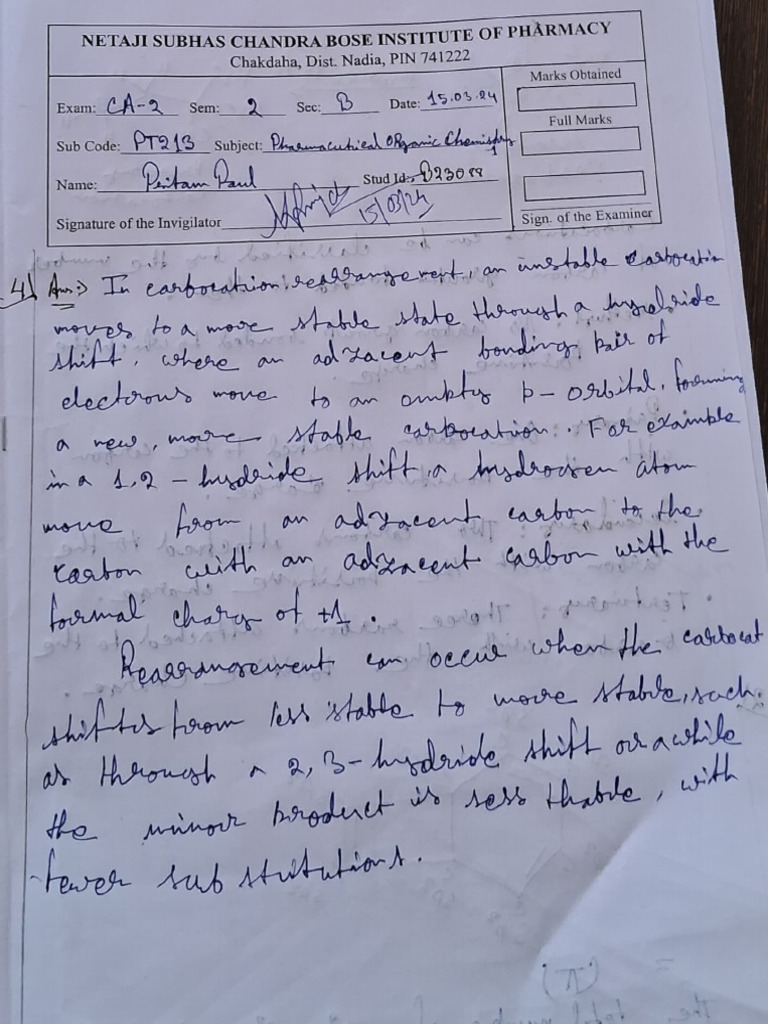 NETAJI SUBHAS CHANDRA BOSE INSTITUTE OF PHARMACY
Chakdaha, Dist. Nadia, PIN 741222
Exam: CA-2 Sem: 2 Sec: B Date: 15.03.24
Marks Obtained
Full Marks
Sub Code: PT213 Subject: Pharmaceutical Organic Chemistry 1
Name: Pritam Paul Stud Id:
Signature of the Invigilator 15/03/24
Sign. of the Examiner
4) Ans:> In carbocation rearrangement, an unstable carbocation
moves to a more stable state through a hydride
shift, where an adzacent bonding pair of
electrons move to an empty p-orbital, forming
a new, more stable carbocation. For example
in a 1,2-hydride shift, a hydrogen atom
move from an adzacent carbon to the
carbon with an adzacent carbon with the
formal charg of +1.
Rearrangement can occur when the carbocat
shiftes from less stable to more stable, such
as through a 2,3-hydride shift or a while
the minor product is sess thable, with
fewer substitutions.